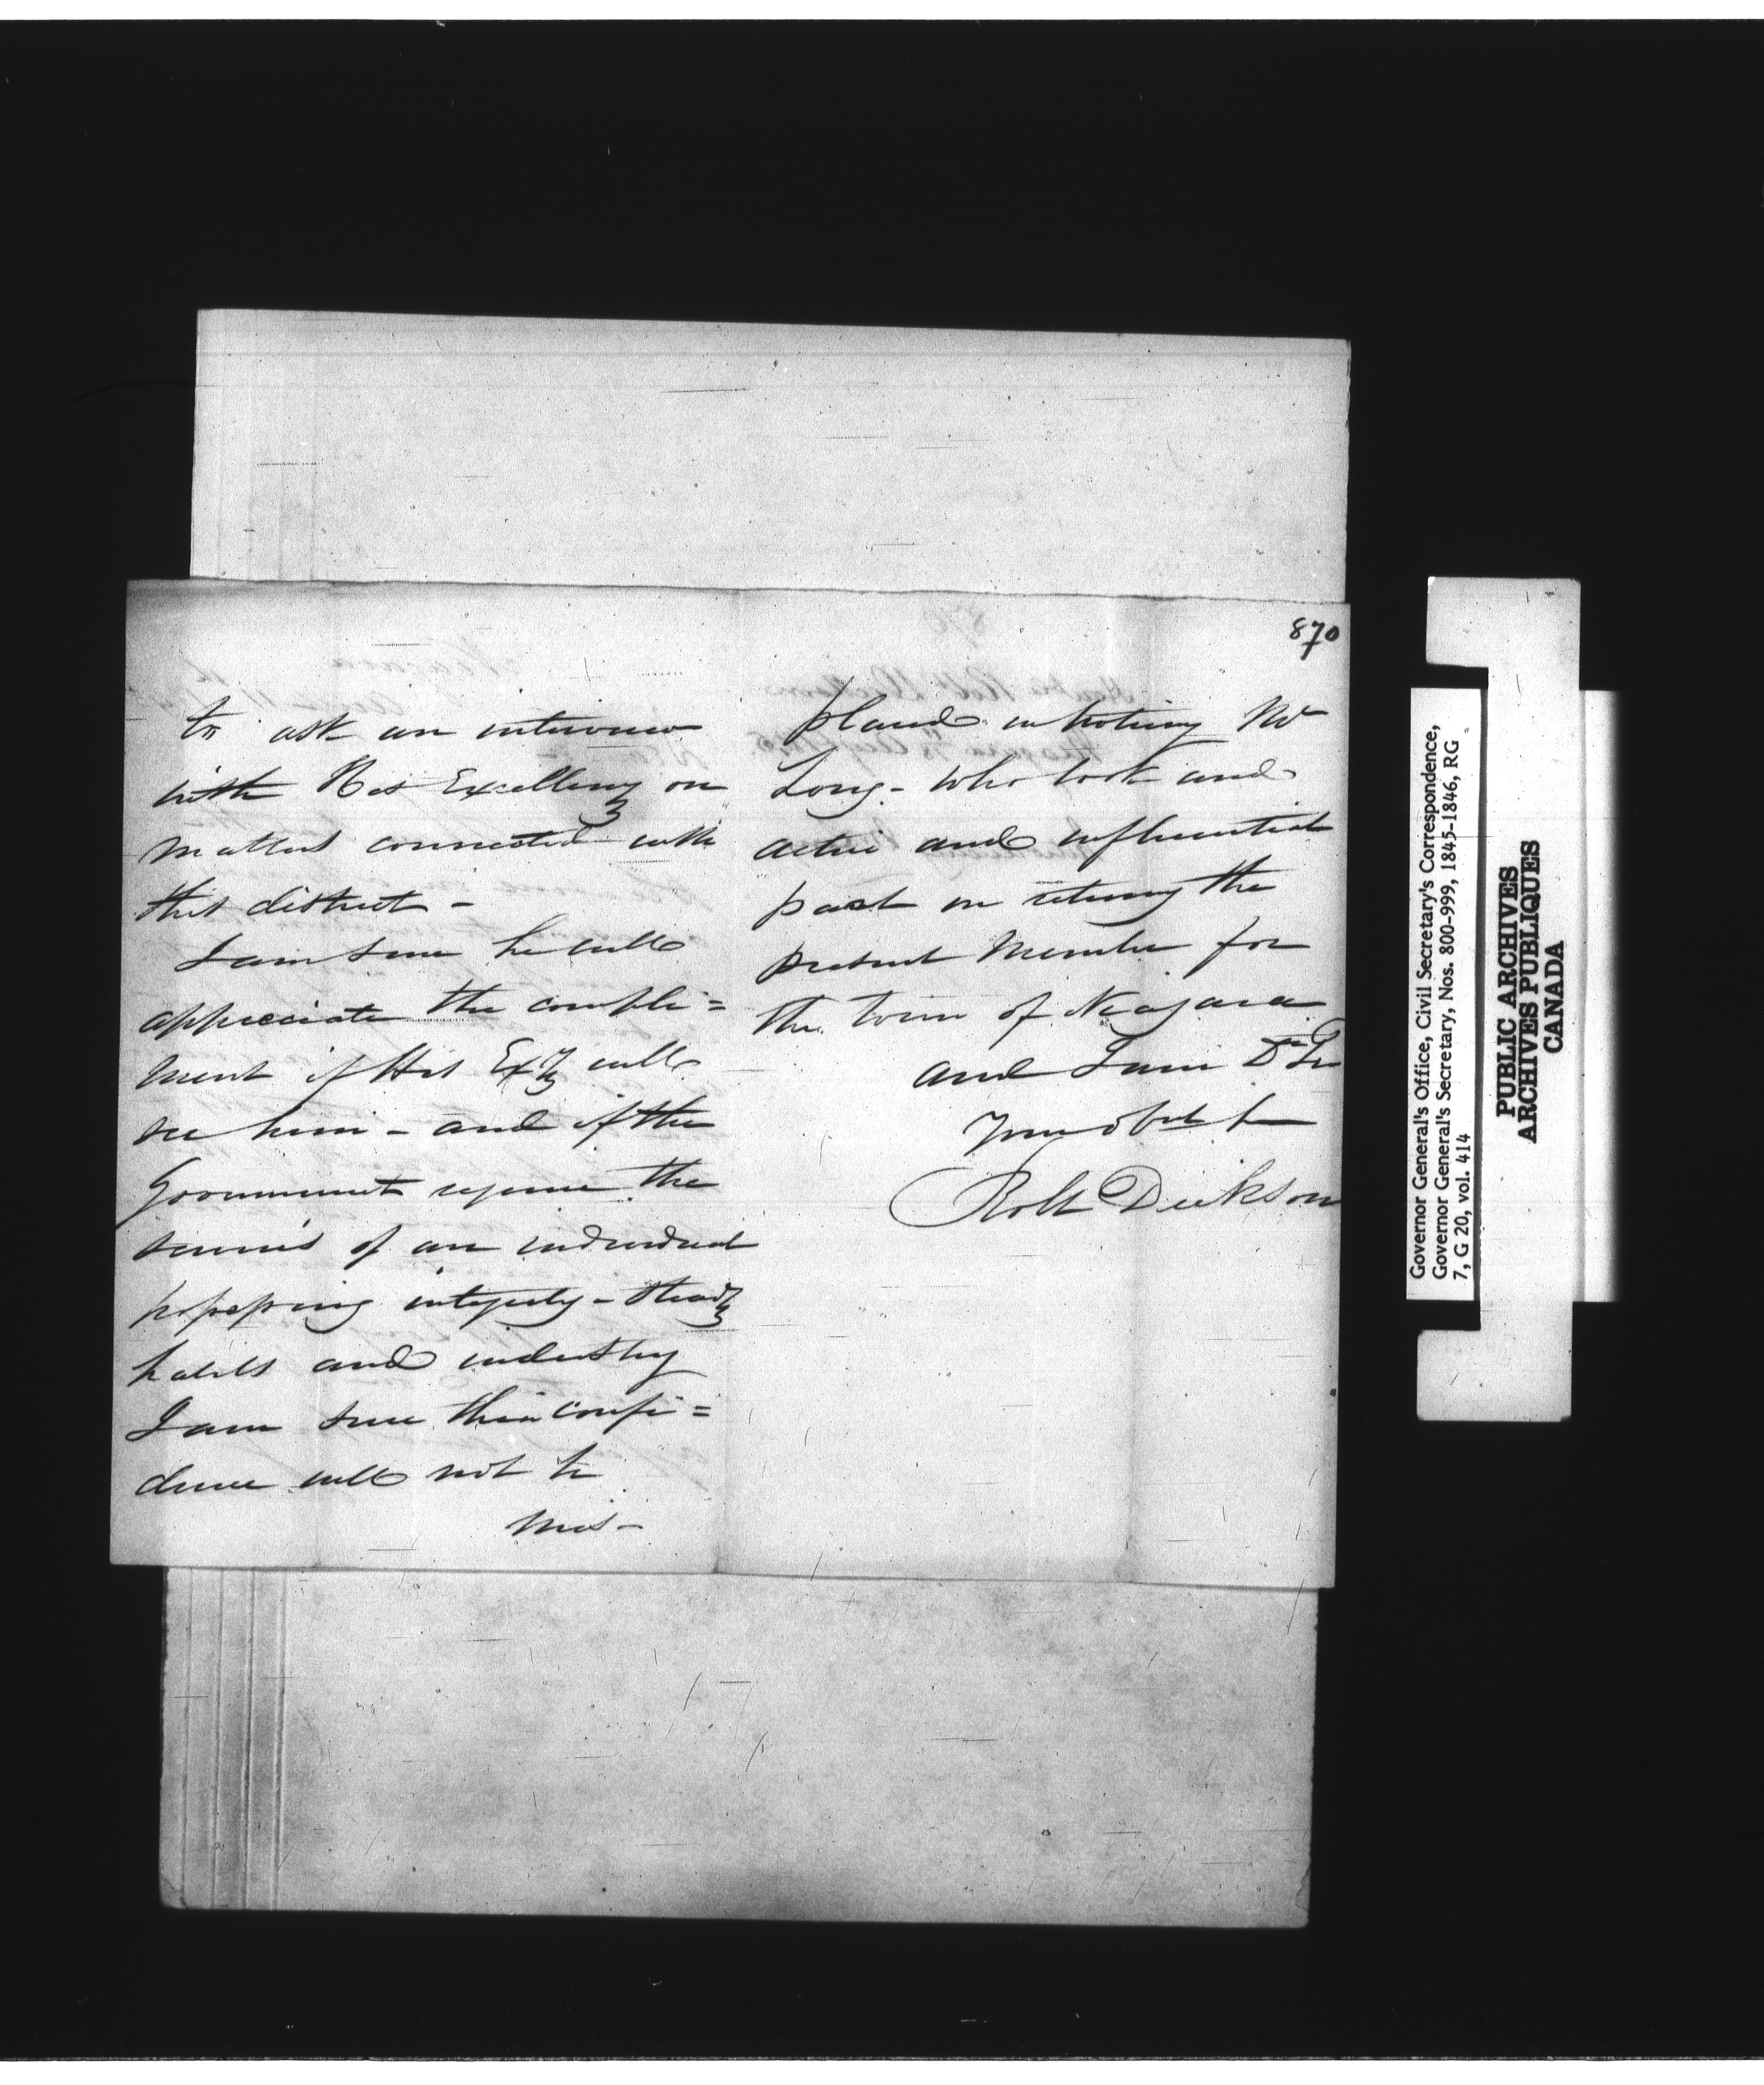 870
to ask an interview
with His Excellency on
matters connected with
this district -
I am sure he will
appreciate the compli=
ment if His Excy will
see him - and if the
Government require the
services of an individual
possessing integrity - steady
habits and industry
I am sure their confi=
dence will not be
mis-
placed in noticing Mr
Long - who took and
active and influential
part in returng the
present Member for
the town of Niagara
and I am Dr Sir
Your obdt
Robt Dickson
Governor General's Office, Civil Secretary's Correspondence,
Governor General's Secretary, Nos. 800-999, 1845-1846, RG
7, G 20, vol. 414
PUBLIC ARCHIVES
ARCHIVES PUBLIQUES
CANADA